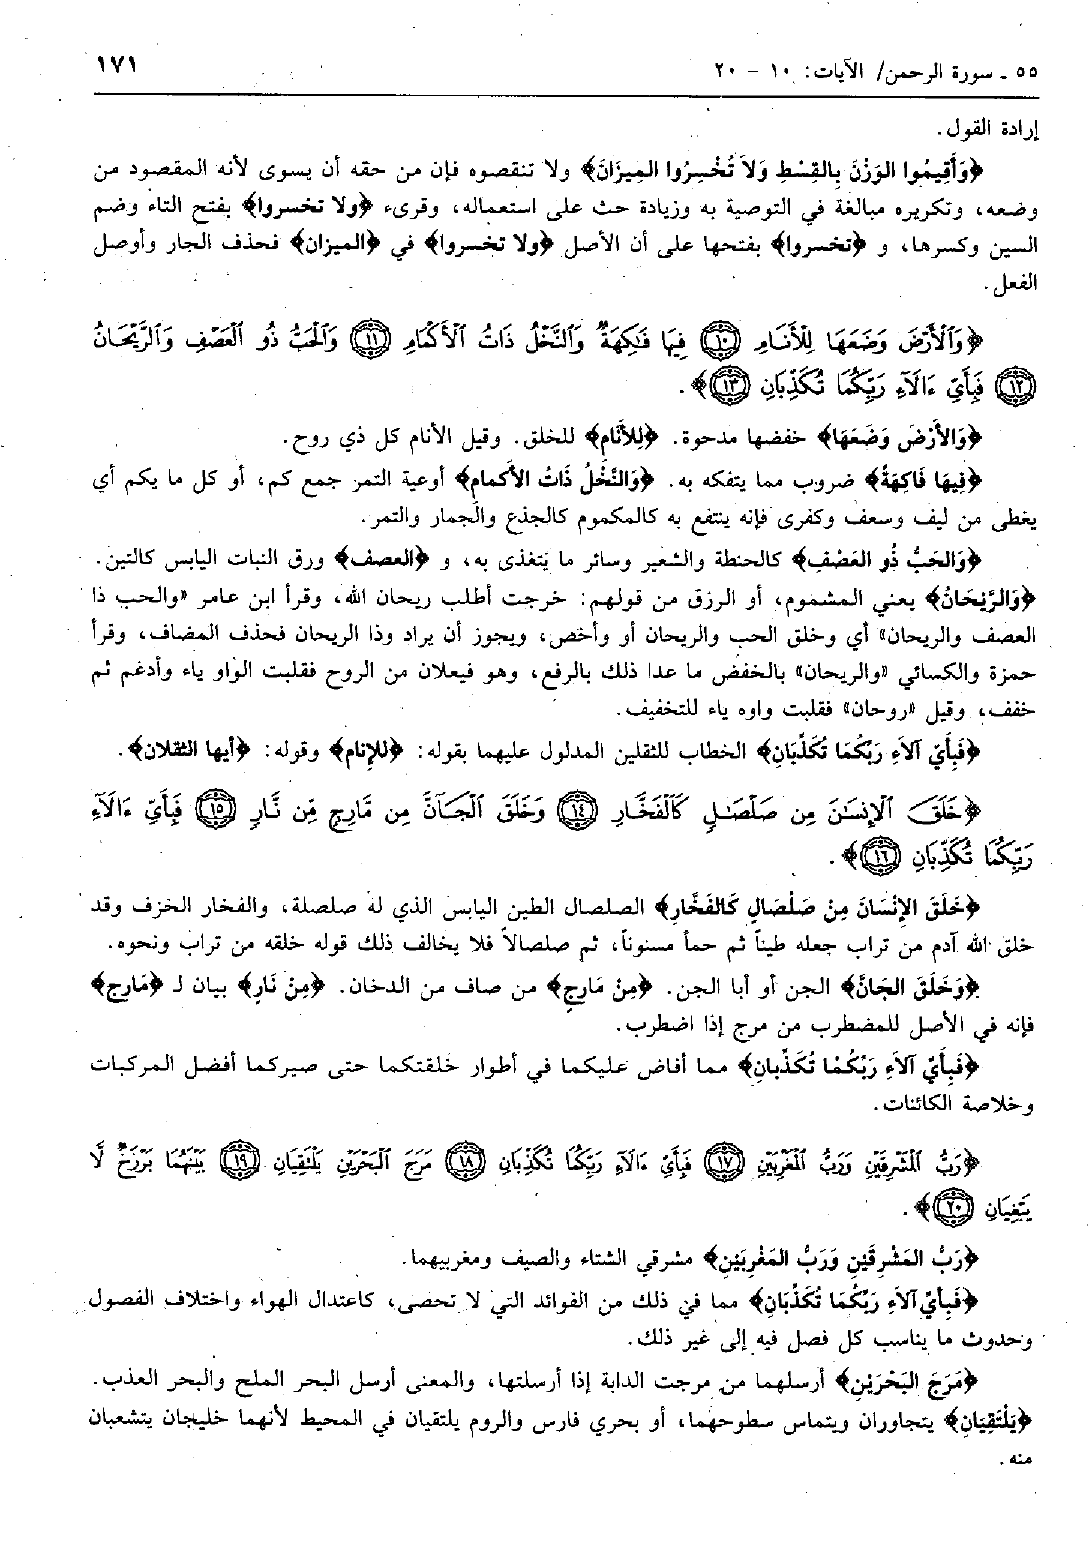 ٥٥ ـ سورة الرحمن/ الآيات: ١٠ - ٢٠
١٧١
إرادة القول.
﴿وَأَقِيمُوا الوَزْنَ بِالقِسْطِ وَلاَ تُخْسِرُوا المِيزَانَ﴾ ولا تنقصوه فإن من حقه أن يسوى لأنه المقصود من
وضعه، وتكريره مبالغة في التوصية به وزيادة حث على استعماله، وقرىء ﴿ولا تخسروا﴾ بفتح التاء وضم
السين وكسرها، و ﴿تخسروا﴾ بفتحها على أن الأصل ﴿ولا تخسروا﴾ في ﴿الميزان﴾ فحذف الجار وأوصل
الفعل.
﴿وَٱلْأَرْضَ وَضَعَهَا لِلْأَنَامِ ﴿١٠﴾ فِيهَا فَٰكِهَةٌ وَٱلنَّخْلُ ذَاتُ ٱلْأَكْمَامِ ﴿١١﴾ وَٱلْحَبُّ ذُو ٱلْعَصْفِ وَٱلرَّيْحَانُ
﴿١٢﴾ فَبِأَيِّ ءَالَآءِ رَبِّكُمَا تُكَذِّبَانِ ﴿١٣﴾﴾.
﴿وَالأَرْضَ وَضَعَهَا﴾ خفضها مدحوة. ﴿لِلأَنَامِ﴾ للخلق. وقيل الأنام كل ذي روح.
﴿فِيهَا فَاكِهَةٌ﴾ ضروب مما يتفكه به. ﴿وَالنَّخْلُ ذَاتُ الأَكْمَامِ﴾ أوعية التمر جمع كم، أو كل ما يكم أي
يغطى من ليف وسعف وكفرى فإنه ينتفع به كالمكموم كالجذع والجمار والتمر.
﴿وَالحَبُّ ذُو العَصْفِ﴾ كالحنطة والشعير وسائر ما يتغذى به، و ﴿العصف﴾ ورق النبات اليابس كالتين.
﴿وَالرَّيْحَانُ﴾ يعني المشموم، أو الرزق من قولهم: خرجت أطلب ريحان الله، وقرأ ابن عامر «والحب ذا
العصف والريحان» أي وخلق الحب والريحان أو وأخص، ويجوز أن يراد وذا الريحان فحذف المضاف، وقرأ
حمزة والكسائي «والريحان» بالخفض ما عدا ذلك بالرفع، وهو فيعلان من الروح فقلبت الواو ياء وأدغم ثم
خفف، وقيل «روحان» فقلبت واوه ياء للتخفيف.
﴿فَبِأَيِّ آلاَءِ رَبِّكُمَا تُكَذِّبَانِ﴾ الخطاب للثقلين المدلول عليهما بقوله: ﴿للإنام﴾ وقوله: ﴿أيها الثقلان﴾.
﴿خَلَقَ ٱلْإِنسَٰنَ مِن صَلْصَٰلٍ كَٱلْفَخَّارِ ﴿١٤﴾ وَخَلَقَ ٱلْجَآنَّ مِن مَّارِجٍ مِّن نَّارٍ ﴿١٥﴾ فَبِأَيِّ ءَالَآءِ
رَبِّكُمَا تُكَذِّبَانِ ﴿١٦﴾﴾.
﴿خَلَقَ الإِنْسَانَ مِنْ صَلْصَالٍ كَالفَخَّارِ﴾ الصلصال الطين اليابس الذي له صلصلة، والفخار الخزف وقد
خلق الله آدم من تراب جعله طيناً ثم حمأ مسنوناً، ثم صلصالاً فلا يخالف ذلك قوله خلقه من تراب ونحوه.
﴿وَخَلَقَ الجَانَّ﴾ الجن أو أبا الجن. ﴿مِنْ مَارِجٍ﴾ من صاف من الدخان. ﴿مِنْ نَارٍ﴾ بيان لـ ﴿مَارِجٍ﴾
فإنه في الأصل للمضطرب من مرج إذا اضطرب.
﴿فَبِأَيِّ آلاَءِ رَبِّكُمَا تُكَذِّبَانِ﴾ مما أفاض عليكما في أطوار خلقتكما حتى صيركما أفضل المركبات
وخلاصة الكائنات.
﴿رَبُّ ٱلْمَشْرِقَيْنِ وَرَبُّ ٱلْمَغْرِبَيْنِ ﴿١٧﴾ فَبِأَيِّ ءَالَآءِ رَبِّكُمَا تُكَذِّبَانِ ﴿١٨﴾ مَرَجَ ٱلْبَحْرَيْنِ يَلْتَقِيَانِ ﴿١٩﴾ بَيْنَهُمَا بَرْزَخٌ لَّا
يَبْغِيَانِ ﴿٢٠﴾﴾.
﴿رَبُّ المَشْرِقَيْنِ وَرَبُّ المَغْرِبَيْنِ﴾ مشرقي الشتاء والصيف ومغربيهما.
﴿فَبِأَيِّ آلاَءِ رَبِّكُمَا تُكَذِّبَانِ﴾ مما في ذلك من الفوائد التي لا تحصى، كاعتدال الهواء واختلاف الفصول
وحدوث ما يناسب كل فصل فيه إلى غير ذلك.
﴿مَرَجَ البَحْرَيْنِ﴾ أرسلهما من مرجت الدابة إذا أرسلتها، والمعنى أرسل البحر الملح والبحر العذب.
﴿يَلْتَقِيَانِ﴾ يتجاوران ويتماس سطوحهما، أو بحري فارس والروم يلتقيان في المحيط لأنهما خليجان يتشعبان
منه.